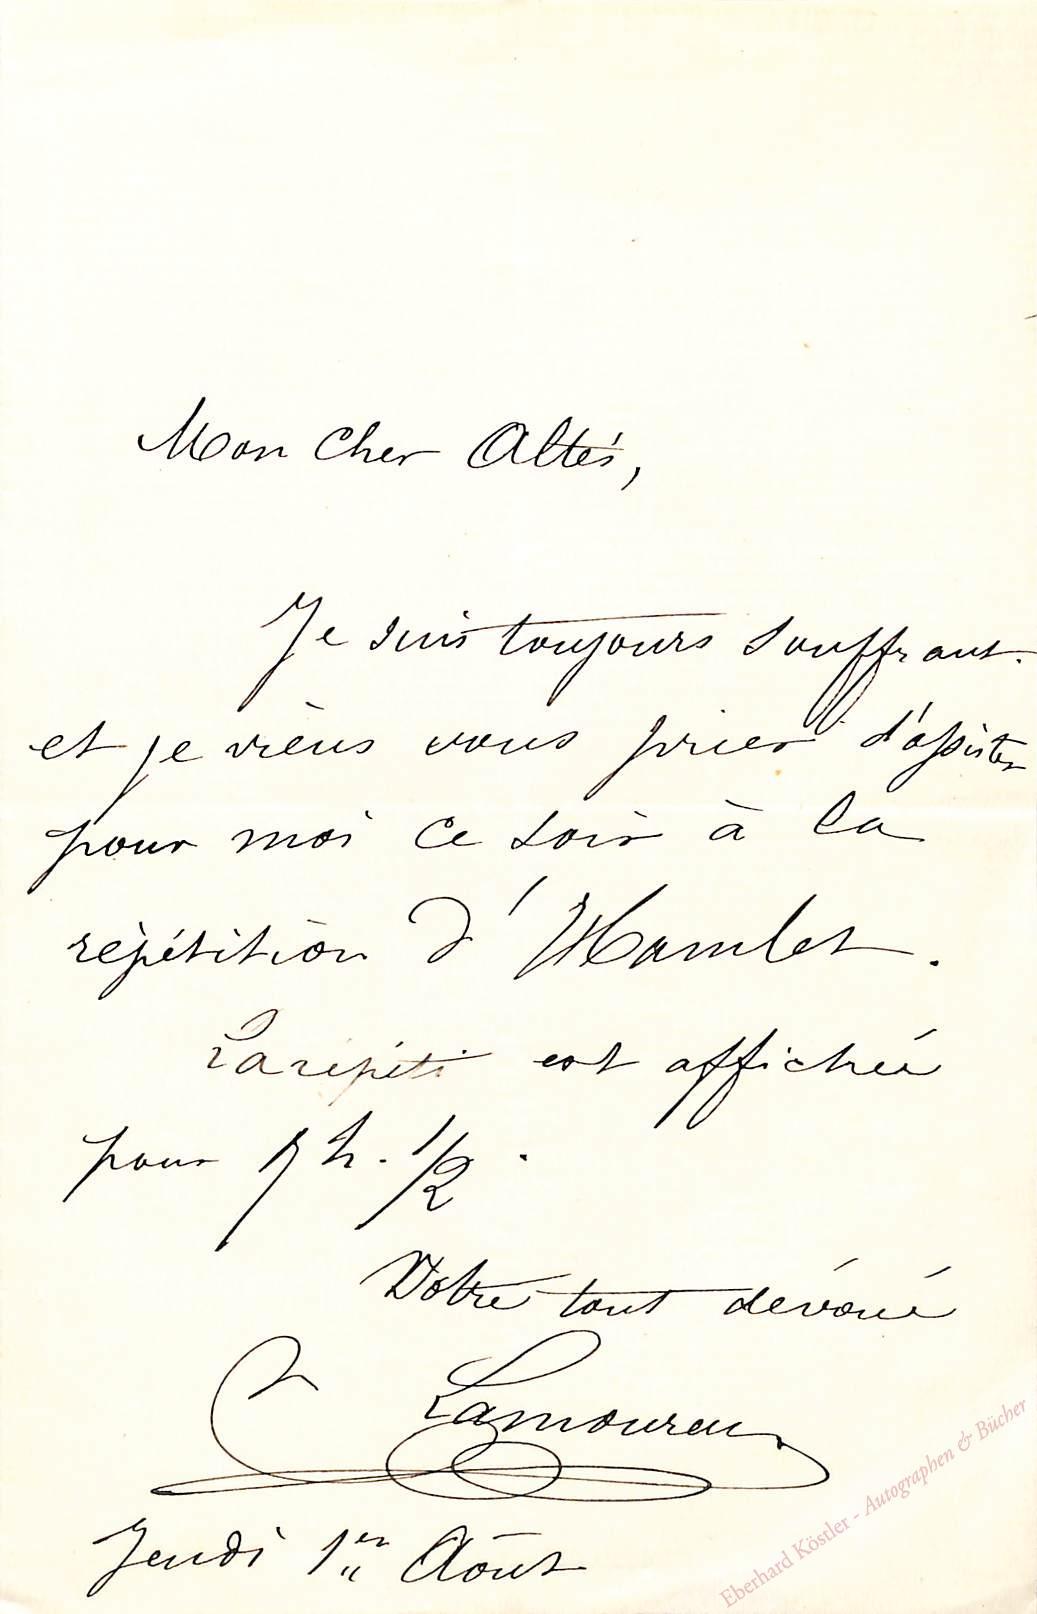 Mon cher Altès,
Je suis toujours souffrant
et je viens vous prier d'assister
pour moi ce soir à la
répétition d'Hamlet.
La répéti est affichée
pour 7 h. 1/2.
Votre tout dévoué
C Lamoureux
Jeudi 1er Août
Eberhard Köstler - Autographen & Bücher